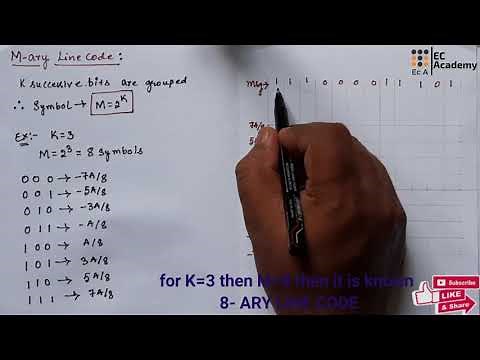 M-ary Line code :
K successive bits are grouped
∴ Symbol → M=2^K
Ex:- K=3
M=2³ = 8 symbols
0 0 0 → -7A/8
0 0 1 → -5A/8
0 1 0 → -3A/8
0 1 1 → -A/8
1 0 0 → A/8
1 0 1 → 3A/8
1 1 0 → 5A/8
1 1 1 → 7A/8
EC
Academy
Ec A
Msg→ 1 1 1 0 0 0 0 1 1 1 0 1
for K=3 then then it is known
8- ARY LINE CODE
Subscribe
LIKE
& Share